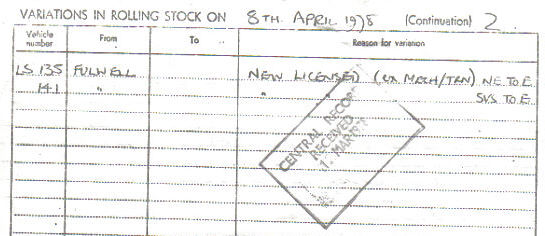 VARIATIONS IN ROLLING STOCK ON 8TH. APRIL 1978 (Continuation) 2
Vehicle number From To Reason for variation
LS 135 FULWELL NEW LICENSED (ex MECH/TRN) NE TO E.
141 " " " SVS TO E.
CENTRAL RECORD
RECEIVED
MAR 197